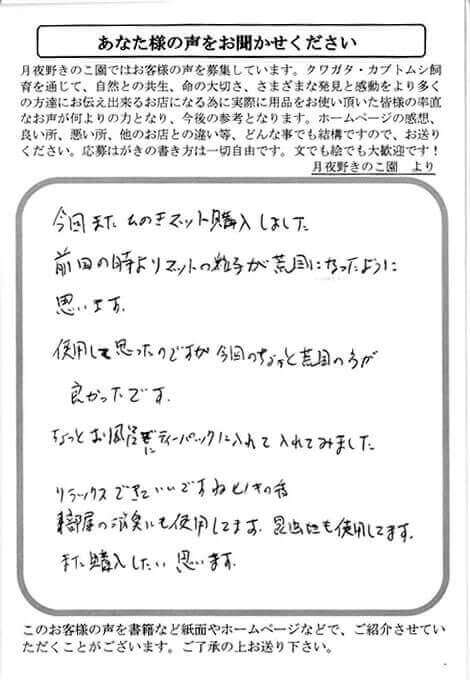 あなた様の声をお聞かせください
月夜野きのこ園ではお客様の声を募集しています。クワガタ・カブトムシ飼
育を通じて、自然との共生、命の大切さ、さまざまな発見と感動をより多く
の方達にお伝え出来るお店になる為に実際に用品をお使い頂いた皆様の率直
なお声が何よりの力となり、今後の参考となります。ホームページの感想、
良い所、悪い所、他のお店との違い等、どんな事でも結構ですので、お送り
ください。応募はがきの書き方は一切自由です。文でも絵でも大歓迎です！
月夜野きのこ園　より
今回また ひのきマット購入しました
前回の時よりマットの粒子が荒目になったように
思います。
使用して思ったのですが今回のちょっと荒目の方が
良かったです。
ちょっとお風呂にティーパックに入れて入れてみました
リラックスできていいですねヒノキの香
部屋の消臭にも使用してます。昆虫にも使用してます。
また購入したい思います。
このお客様の声を書籍など紙面やホームページなどで、ご紹介させてい
ただくことがございます。ご了承の上お送り下さい。